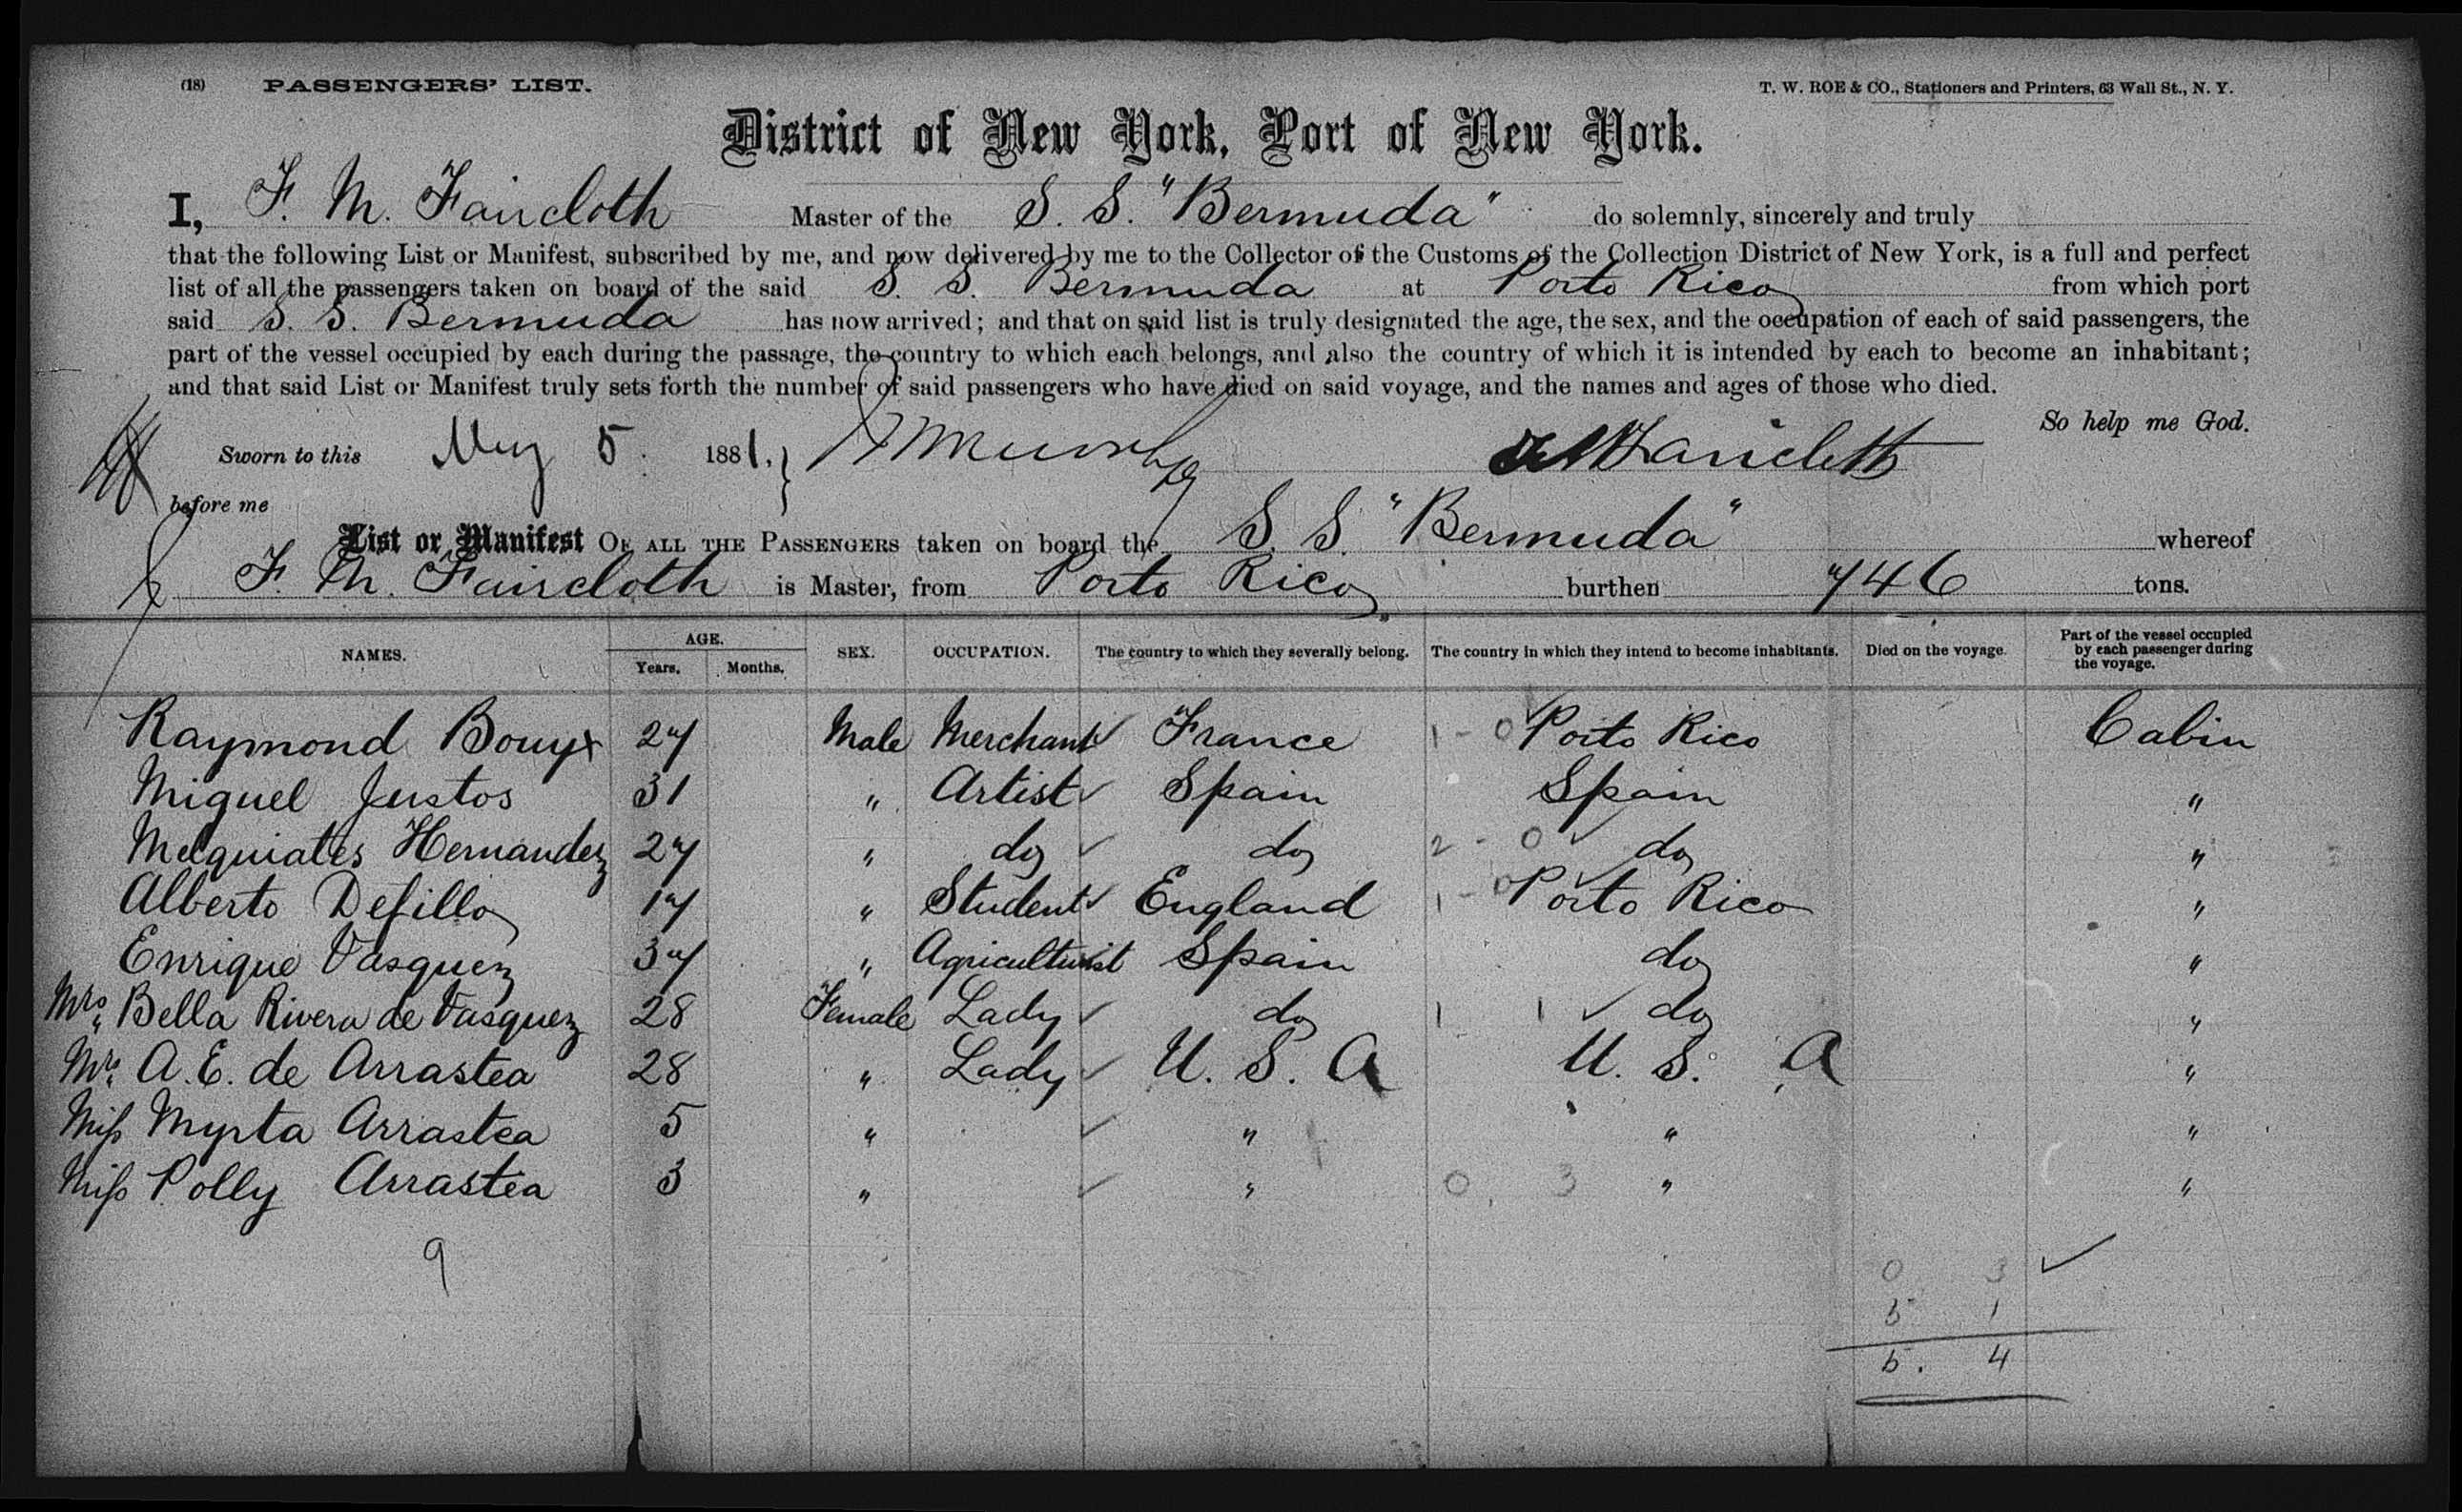 (18) PASSENGERS' LIST. T. W. ROE & CO., Stationers and Printers, 63 Wall St., N. Y.
District of New York, Port of New York.
I, F. M. Faircloth Master of the S. S. "Bermuda" do solemnly, sincerely and truly
that the following List or Manifest, subscribed by me, and now delivered by me to the Collector of the Customs of the Collection District of New York, is a full and perfect
list of all the passengers taken on board of the said S. S. Bermuda at Porto Rico from which port
said S. S. Bermuda has now arrived; and that on said list is truly designated the age, the sex, and the occupation of each of said passengers, the
part of the vessel occupied by each during the passage, the country to which each belongs, and also the country of which it is intended by each to become an inhabitant;
and that said List or Manifest truly sets forth the number of said passengers who have died on said voyage, and the names and ages of those who died.
So help me God.
Sworn to this May 5 1881, F M Faircloth
before me
List or Manifest OF ALL THE PASSENGERS taken on board the S. S. "Bermuda" whereof
F. M. Faircloth is Master, from Porto Rico burthen 746 tons.
NAMES. AGE. Years. Months. SEX. OCCUPATION. The country to which they severally belong. The country in which they intend to become inhabitants. Died on the voyage. Part of the vessel occupied by each passenger during the voyage.
Raymond Bouyx 27 Male Merchant France 1 - 0 Porto Rico Cabin
Miguel Justos 31 " Artist Spain Spain "
Melquiates Hernandez 27 " do do 2 - 0 do "
Alberto Defillo 17 " Student England 1 - 0 Porto Rico "
Enrique Vasquez 37 " Agriculturist Spain do "
Mrs. Bella Rivera de Vasquez 28 Female Lady do 1 1 do "
Mrs. A. E. de Arrastea 28 " Lady U. S. A U. S. A "
Miss Myrta Arrastea 5 " " " "
Miss Polly Arrastea 3 " " 0. 3 " "
9
0 3
5 1
5. 4